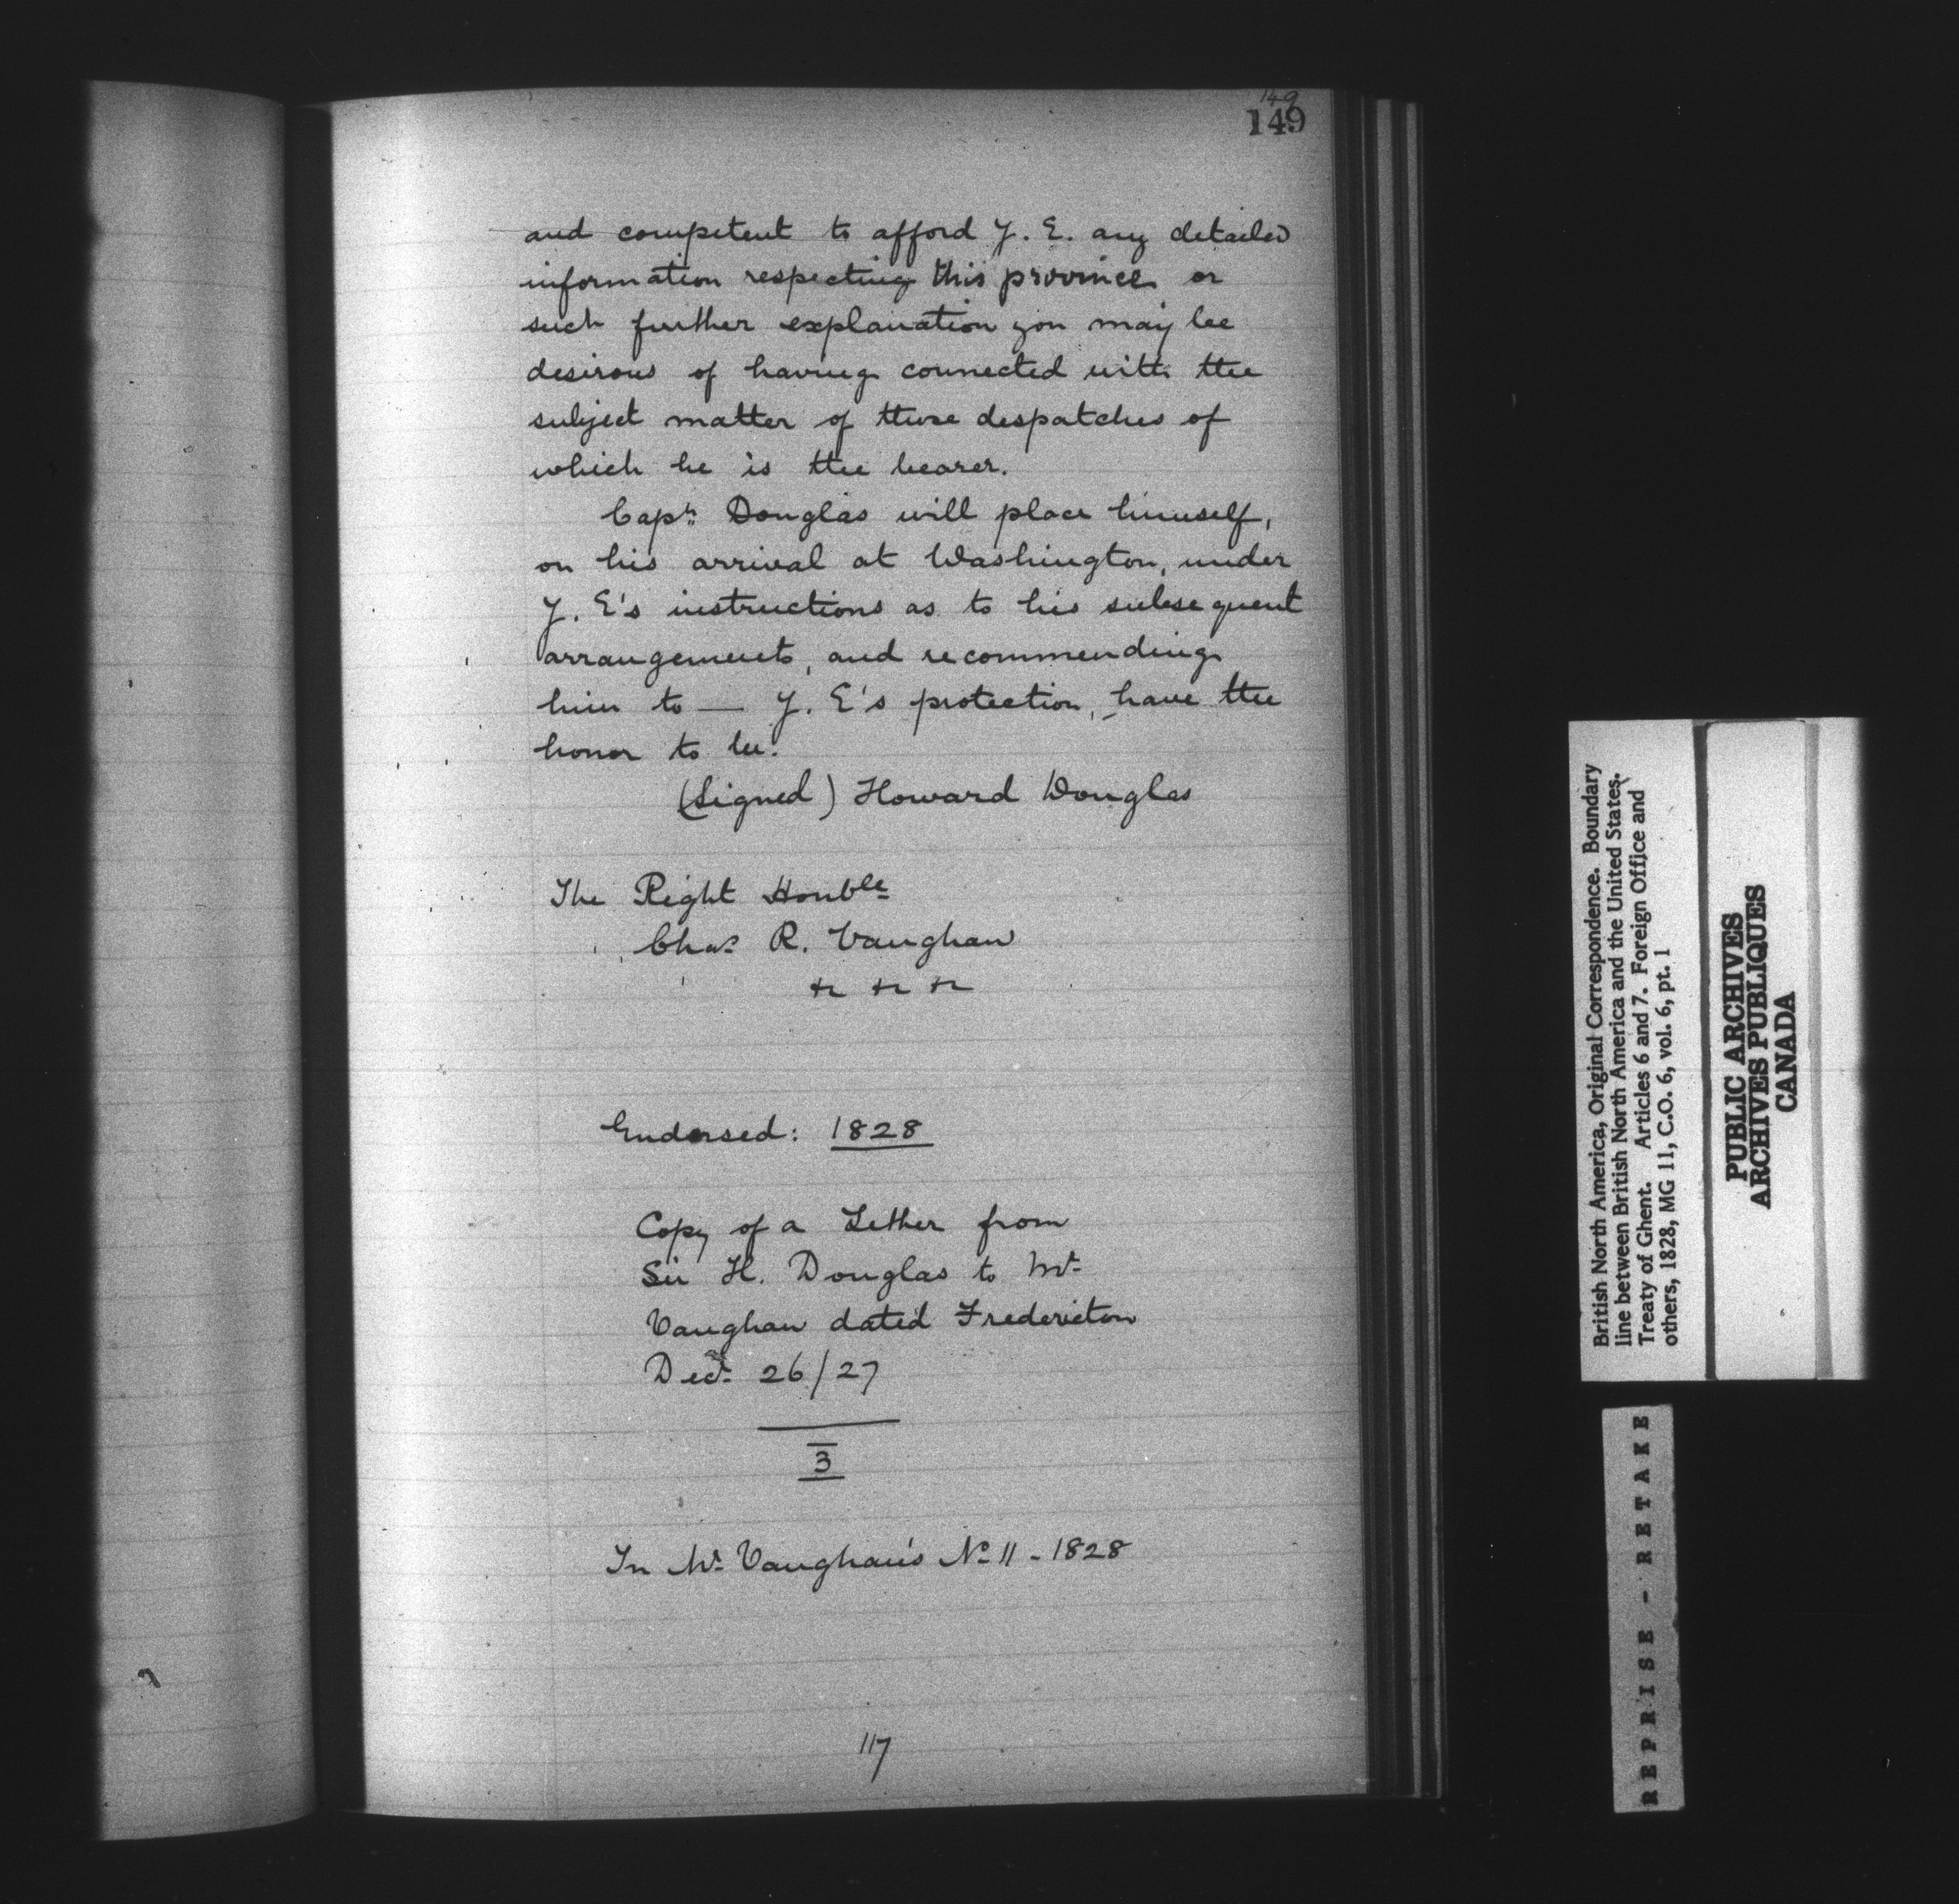 149
149
and competent to afford Y. E. any detailed
information respecting this province or
such further explanation you may be
desirous of having connected with the
subject matter of those despatches of
which he is the bearer.
Capn. Douglas will place himself,
on his arrival at Washington, under
Y. E's instructions as to his subsequent
arrangements, and recommending
him to — Y. E's protection, have the
honor to be.
(Signed) Howard Douglas
The Right Honble
Chas. R. Vaughan
Endorsed: 1828
Copy of a Letter from
Sir H. Douglas to Mr.
Vaughan dated Fredericton
Decr. 26/27
3
In Mr. Vaughan's No. 11 - 1828
117
British North America, Original Correspondence. Boundary
line between British North America and the United States.
Treaty of Ghent. Articles 6 and 7. Foreign Office and
others, 1828, MG 11, C.O. 6, vol. 6, pt. 1
PUBLIC ARCHIVES
ARCHIVES PUBLIQUES
CANADA
REPRISE - RETAKE